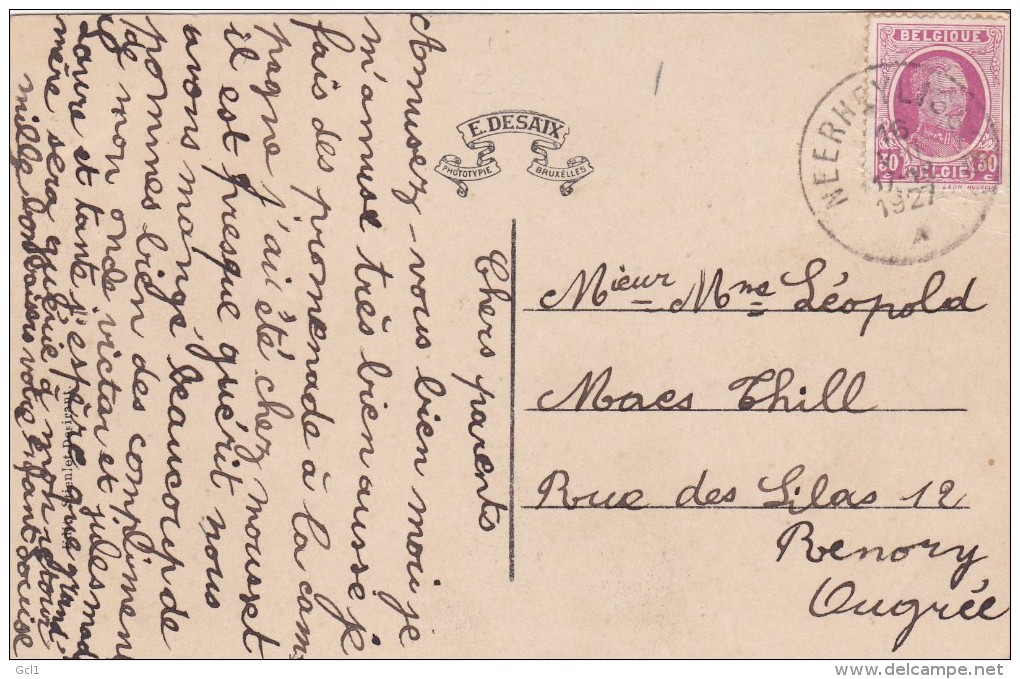 Chers parents
Amusez-vous bien moi je
m'amuse très bien aussi je
fais des promenade à la cam
pagne j'ai été chez mousset
il est presque guérit nous
avons mangé beaucoup de
pommes bien des complimen
de mon oncle victor et jules mad
Laure et tante j'espère que grand'
mère sera guérie à mon retour
mille bon baisers votre enfant Louise
E. DESAIX
PHOTOTYPIE BRUXELLES
BELGIQUE
30 30
BELGIË
MEERHEYLISS
16
1927
A
Mieur Mme Léopold
Maes Thill
Rue des Lilas 12
Renory
Ougrée
Gcl1
www.delcampe.net